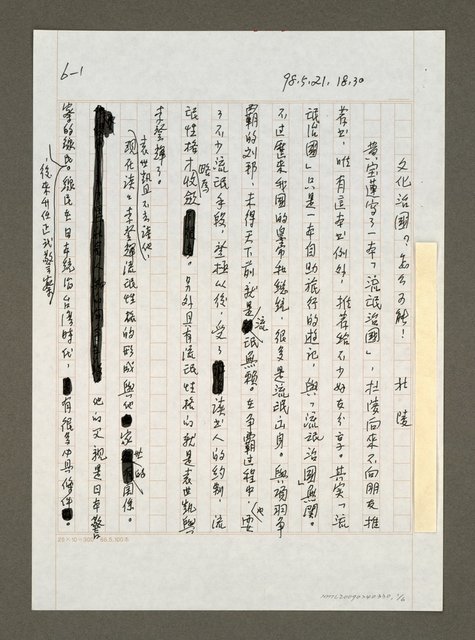 6-1
98.5.21. 18.30
文化治國?怎么可能! 杜陵
黃宝蓮寫了一本「流氓治國」,杜陵向來不向朋友推
荐书,唯有這本书例外,推荐給不少好友分享。其实「流
氓治國」只是一本自助旅行的遊記,與「流氓治國」無関。
不过歷來我國的皇帝和總統,很多是流氓出身。與項羽爭
霸的刘邦,未得天下前就是流氓無賴。在爭霸過程中,也耍
了不少流氓手段,登極以後,受了讀书人的約制,流
氓性格才略爲收斂。另外具有流氓性格的就是袁世凱與
李登輝了。
袁世凱且不去談他
現在談談李登輝流氓性格的形成與他家世的関係。
他的父親是日本警
察的線民。線民在日本統治台灣時代,有很多條件。
,後來升任正式警察
NMTL20090240330, 1/6